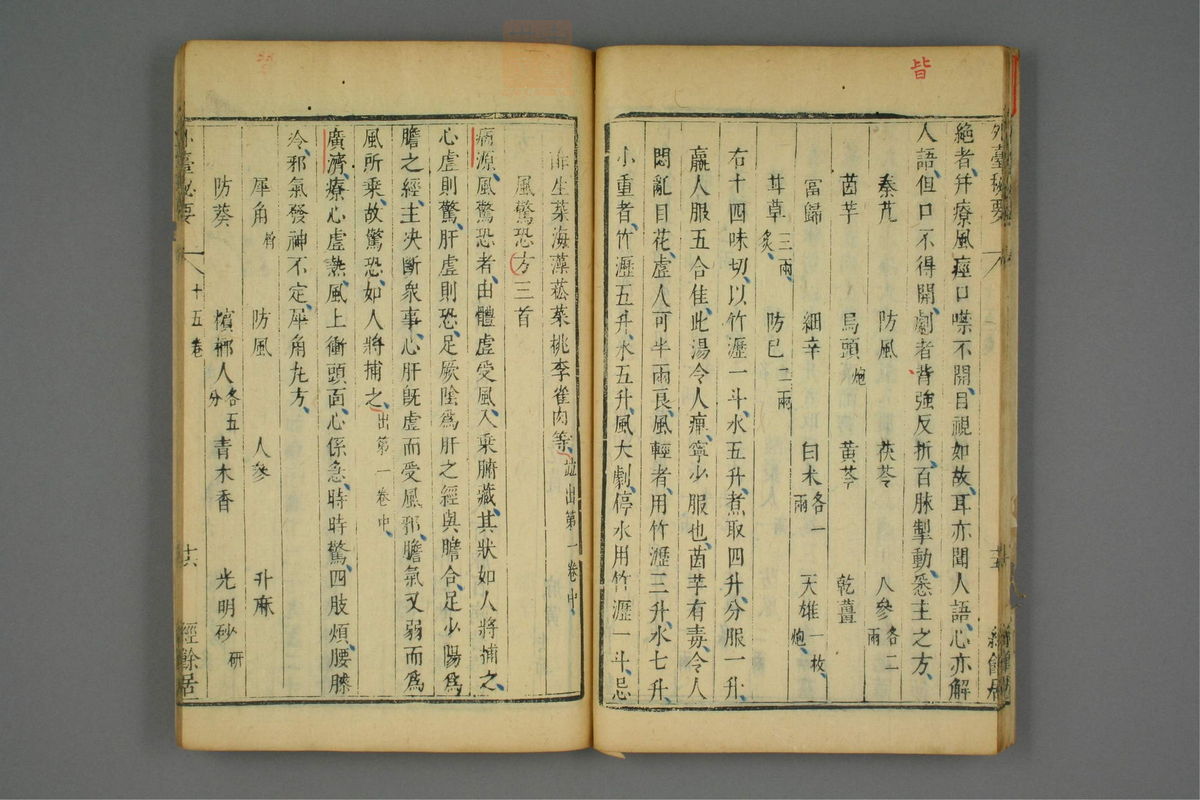 皆
外臺秘要
絶者并療風痙口噤不開目視如故耳亦聞人語心亦解
人語但口不得開劇者背強反折百脉掣動悉主之方
秦艽 防風 茯苓 人參各二兩
茵芋 烏頭炮 黃芩 乾薑
當歸 細辛 白朮各一兩 天雄一枚炮
甘草三兩炙 防巳二兩
右十四味切以竹瀝一斗水五升煮取四升分服一升
羸人服五合佳此湯令人痺寧少服也茵芋有毒令人
悶亂目花虛人可半兩良風輕者用竹瀝三升水七升
小重者竹瀝五升水五升風大劇停水用竹瀝一斗忌
生菜海藻菘菜桃李雀肉等並出第一卷中
風驚恐方三首
病源風驚恐者由體虛受風入乘腑藏其狀如人將捕之
心虛則驚肝虛則恐足厥陰爲肝之經與膽合足少陽爲
膽之經主决斷衆事心肝旣虛而受風邪膽氣又弱而爲
風所乘故驚恐如人將捕之出第一卷中
廣濟療心虛熱風上衝頭面心係急時時驚四肢煩腰膝
冷邪氣發神不定犀角丸方
犀角屑 防風 人參 升麻
防葵 檳榔人各五分 青木香 光明砂研
外臺秘要 十五卷 廿六 經餘居